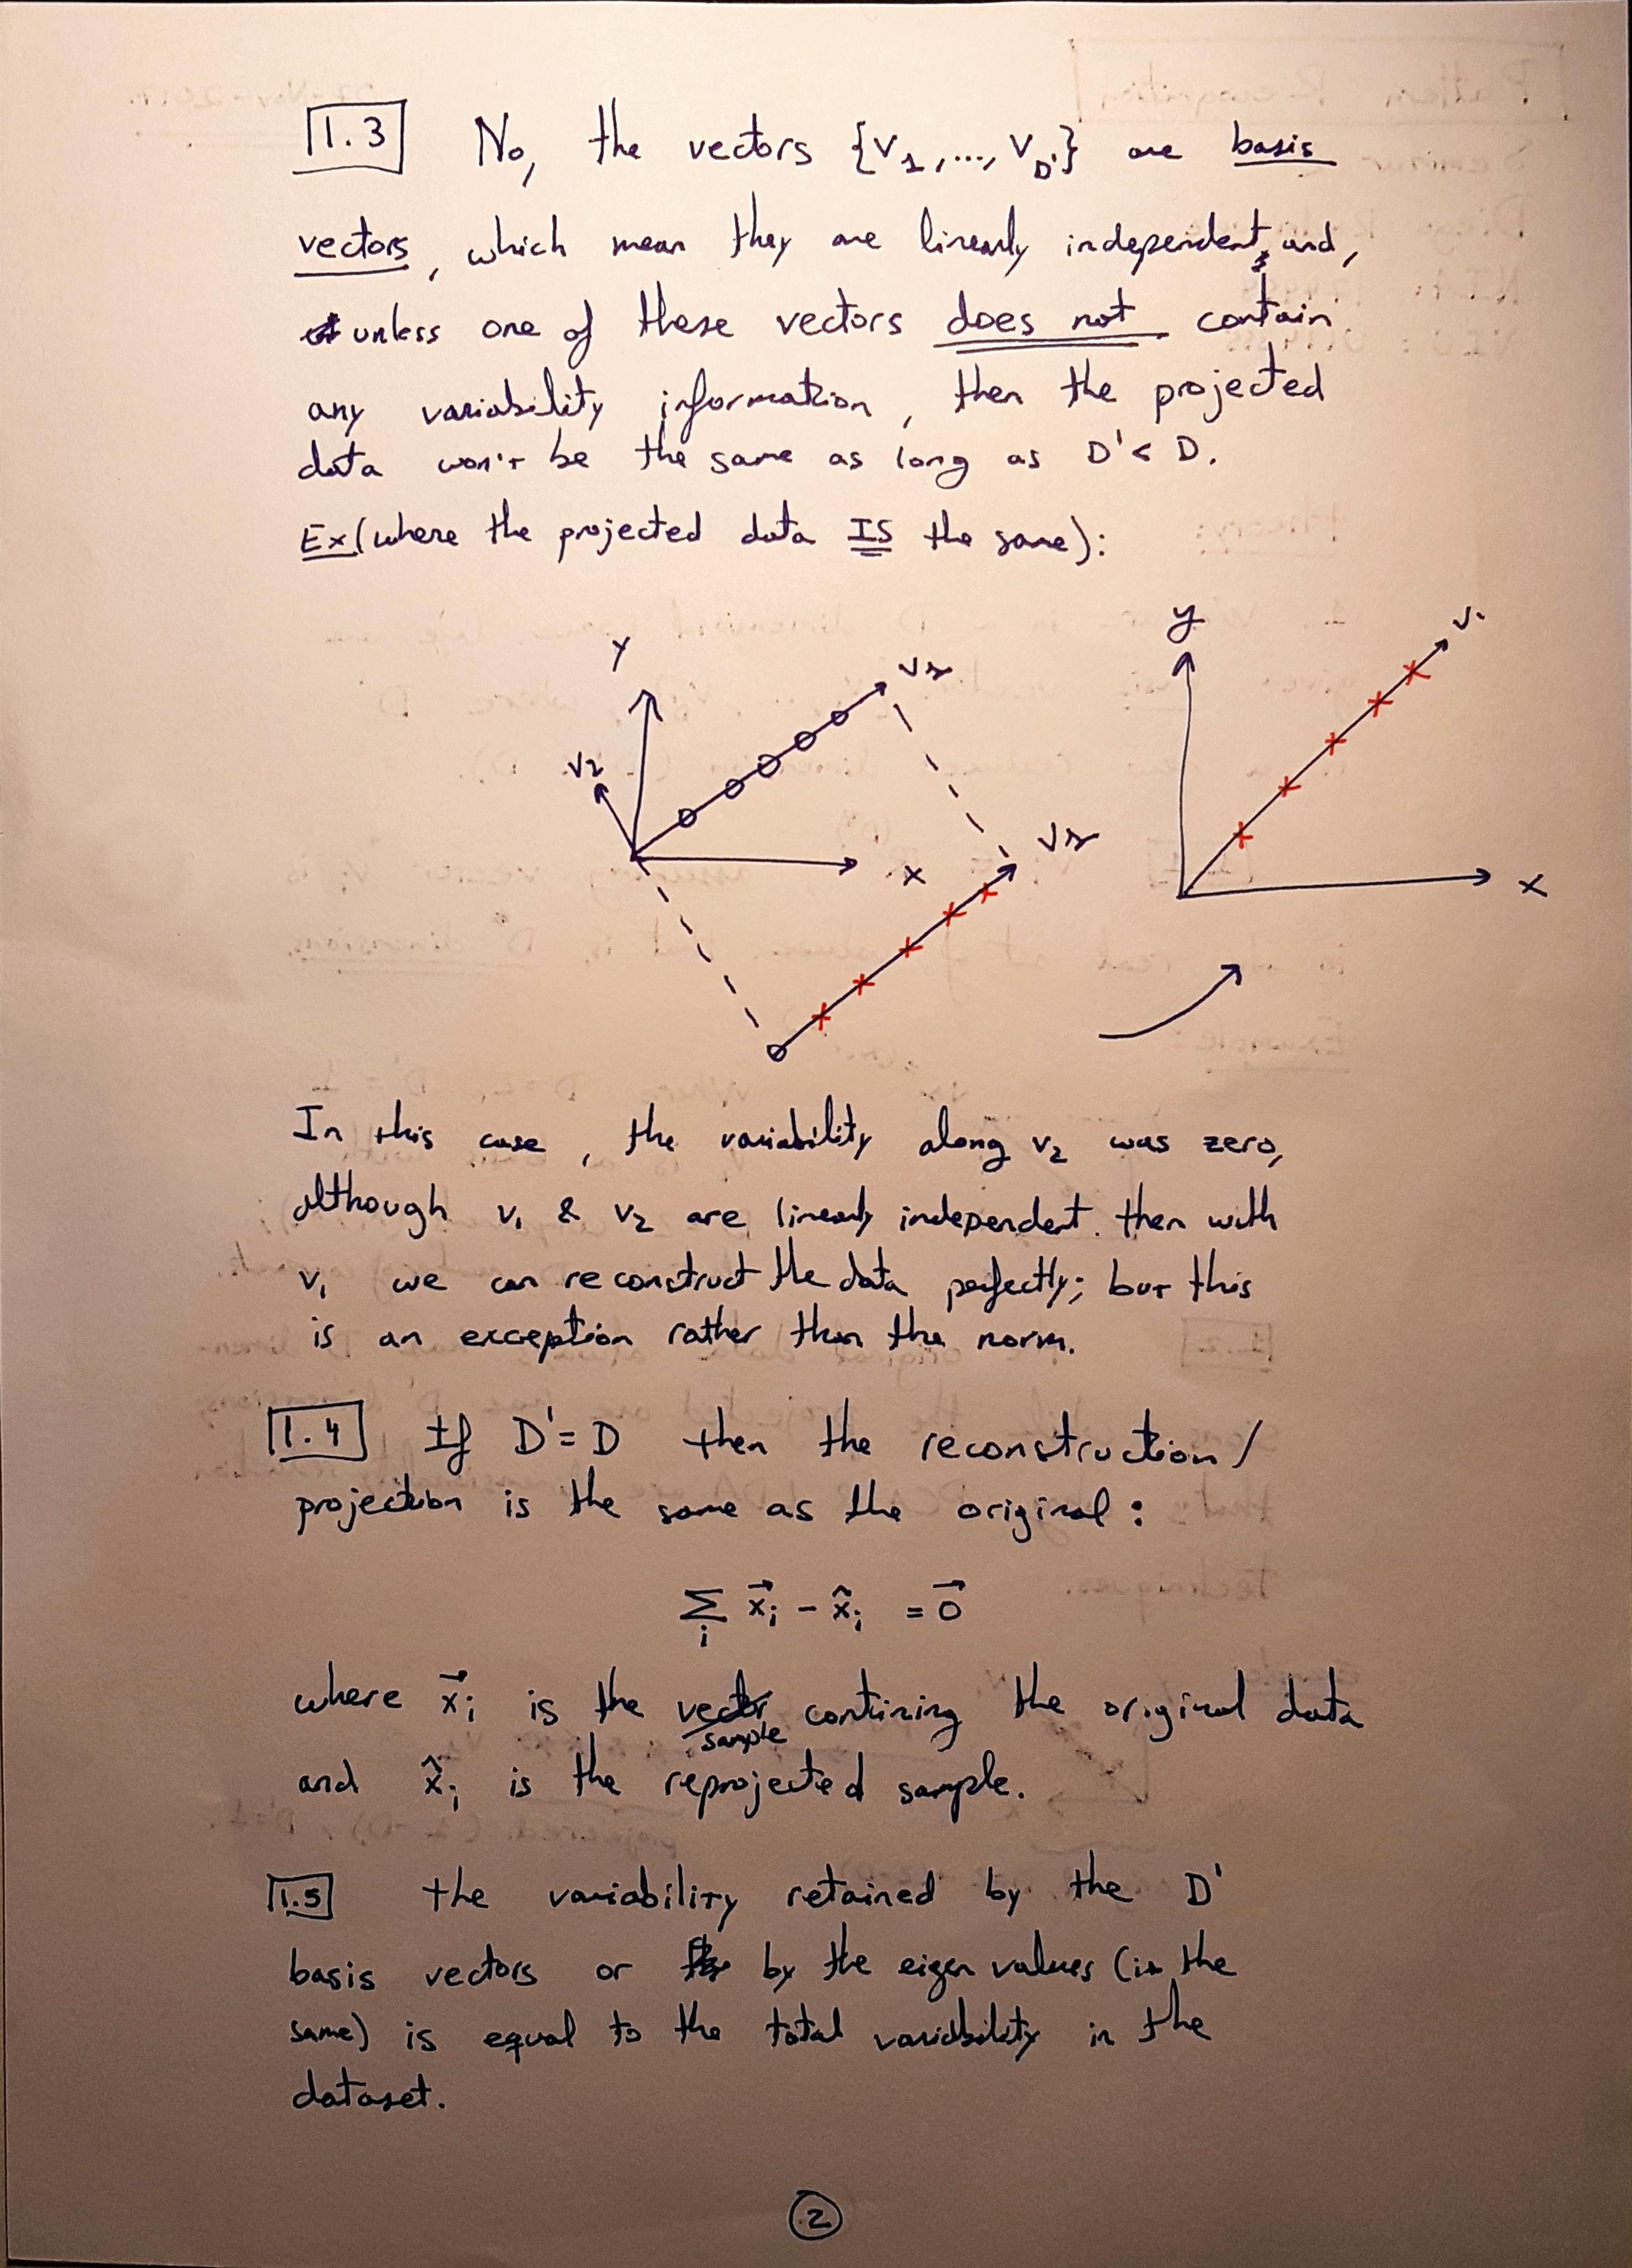 1.3 No, the vectors {v₁,..., v_D'} are basis
vectors, which mean they are linearly independent, and,
unless one of these vectors does not contain
any variability information, then the projected
data won't be the same as long as D' < D.
Ex (where the projected data IS the same):
y
v₁
Y
v₁
v₂
v₁
x
x
In this case, the variability along v₂ was zero,
although v₁ & v₂ are linearly independent. then with
v₁ we can reconstruct the data perfectly; but this
is an exception rather than the norm.
1.4 If D' = D then the reconstruction/
projection is the same as the original:
∑ x⃗ᵢ - x̂ᵢ = 0⃗
i
where x⃗ᵢ is the vector contining the original data
sample
and x̂ᵢ is the reprojected sample.
1.5 the variability retained by the D'
basis vectors or by the eigen values (is the
same) is equal to the total variability in the
dataset.
2